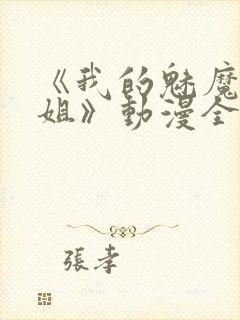 《我的魅魔
姐》動漫全
張孝